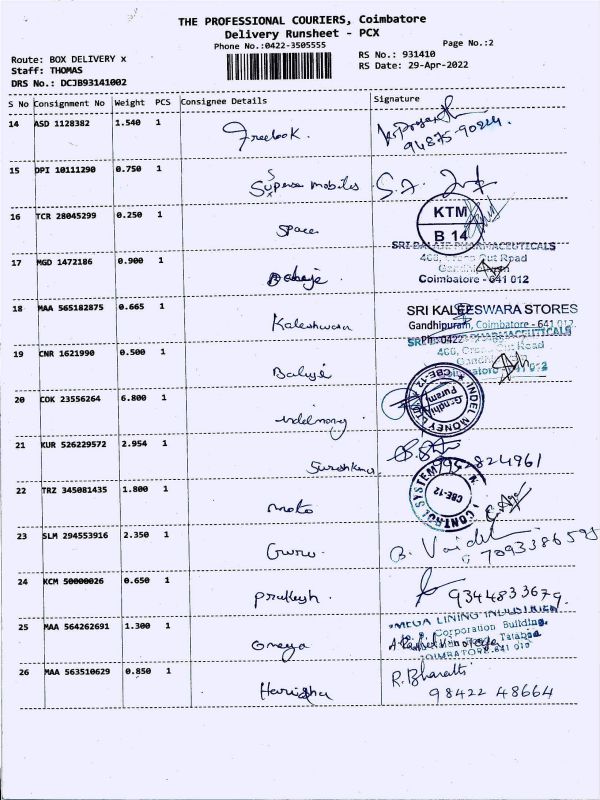 THE PROFESSIONAL COURIERS, Coimbatore
Delivery Runsheet - PCX
Phone No.:0422-3505555
Page No.:2
Route: BOX DELIVERY x
RS No.: 931410
Staff: THOMAS
RS Date: 29-Apr-2022
DRS No.: DCJB93141002
S No Consignment No Weight PCS Consignee Details Signature
14 ASD 1128382 1.540 1
94875-90224.
15 DPI 10111290 0.750 1 Supense mobiles S.A.
16 TCR 28045299 0.250 1 Space
KTM
B 14
SRI BALAJE PHARMACEUTICALS
468, Cross Cut Road
17 MGD 1472186 0.900 1
Coimbatore - 641 012
18 MAA 565182875 0.665 1 Kaleshwara
SRI KALEESWARA STORES
Gandhipuram, Coimbatore - 641 012.
Ph: 0422
PHARMACEUTICALS
19 CNR 1621990 0.500 1 Balaje
20 COK 23556264 6.800 1 indelmoney
INDEL MONEY
CBE-12
Gandhi
Puram
21 KUR 526229572 2.954 1 Sureshkumar
9952824961
22 TRZ 345081435 1.800 1 moto
CONTROL SYSTEM
CBE-12
23 SLM 294553916 2.350 1 Guru. B.
24 KCM 50000026 0.650 1 Prakash. 9344833679.
25 MAA 564262691 1.300 1 Omega
MEGA LINING INDUSTRIES
Corporation Building,
COIMBATORE-641 010
26 MAA 563510629 0.850 1 R.Bharathi
98422 48664